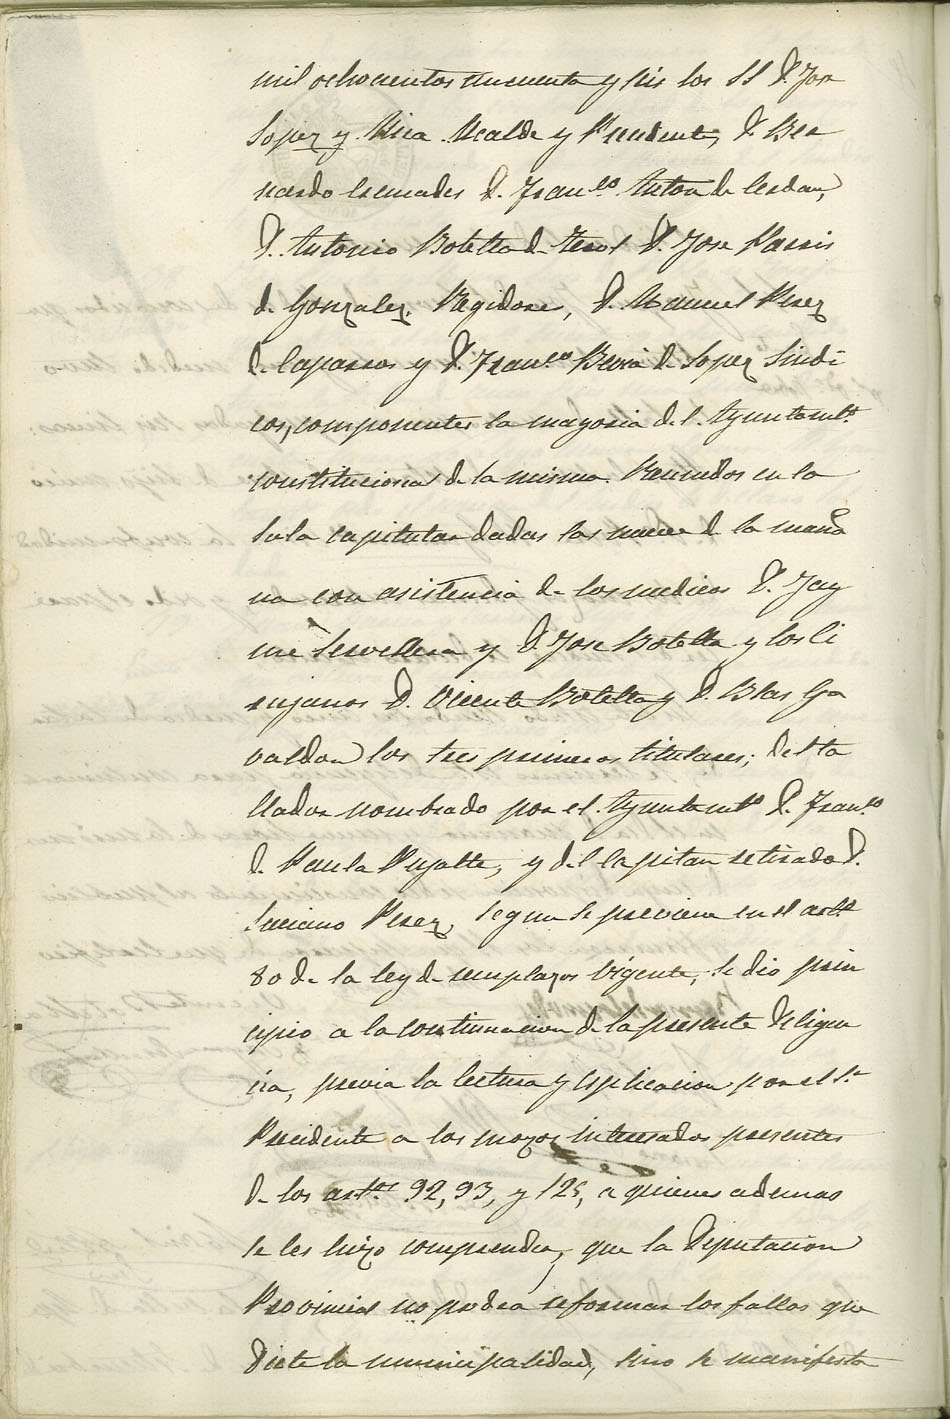 mil ochocientos cincuenta y seis los SS D. Jose
Lopez y Mira Alcalde y Precidente, D. Ber
nardo Cremades D. Franco. Anton de Cerdan,
D. Antonio Botella de Terol D. Jose Parris
de Gonzalez, Regidores, D. Manuel Perez
de Caparros y D. Franco. Beviá de Lopez Sindi
cos, componentes la mayoria del Ayuntamto.
constitucional de la misma. Reunidos en la
Sala capitular dadas las nueve de la maña
na con asistencia de los medicos D. Jay
me Servellera y D. Jose Botella y los Ci
rujanos D. Vicente Botella y D. Blas Ga
valdon los tres primeros titulares; del ta
llador nombrado por el Ayuntamto D. Franco.
de Paula Pujalte, y del Capitan retirado D.
Luciano Perez, segun se previene en el arto.
80 de la ley de remplazos vigente, se dio prin
cipio a la continuacion de la presente diligen
cia, previa la lectura y esplicacion por el Sr.
Precidente a los mozos interesados presentes
de los arts. 92, 93, y 125, a quienes ademas
se les hizo comprender, que la Diputacion
Provincial no podra reformar los fallos que
dicte la municipalidad, sino se manifesta